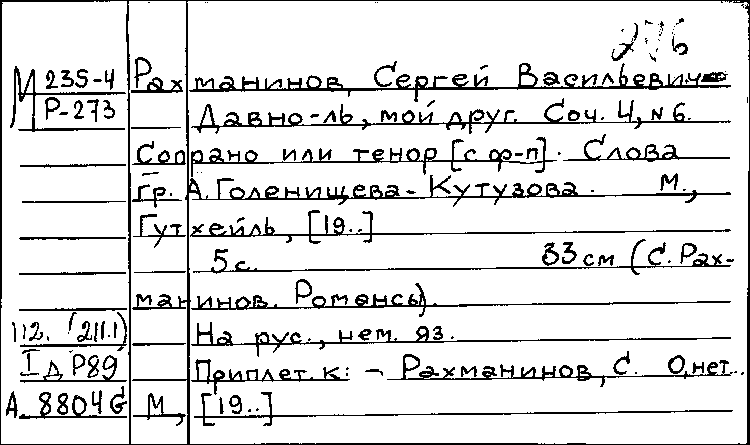 276
М 235-4
Р-273
Рахманинов, Сергей Васильевич
Давно-ль, мой друг. Соч. 4, № 6.
Сопрано или тенор [с ф-п]. Слова
гр. А. Голенищева-Кутузова. М.,
Гутхейль, [19..]
5 с. 33 см (С. Рах-
манинов. Романсы).
112. (211.1) На рус., нем. яз.
I д Р89 Приплет. к: - Рахманинов, С. О, нет..
А 8804 G М, [19..]